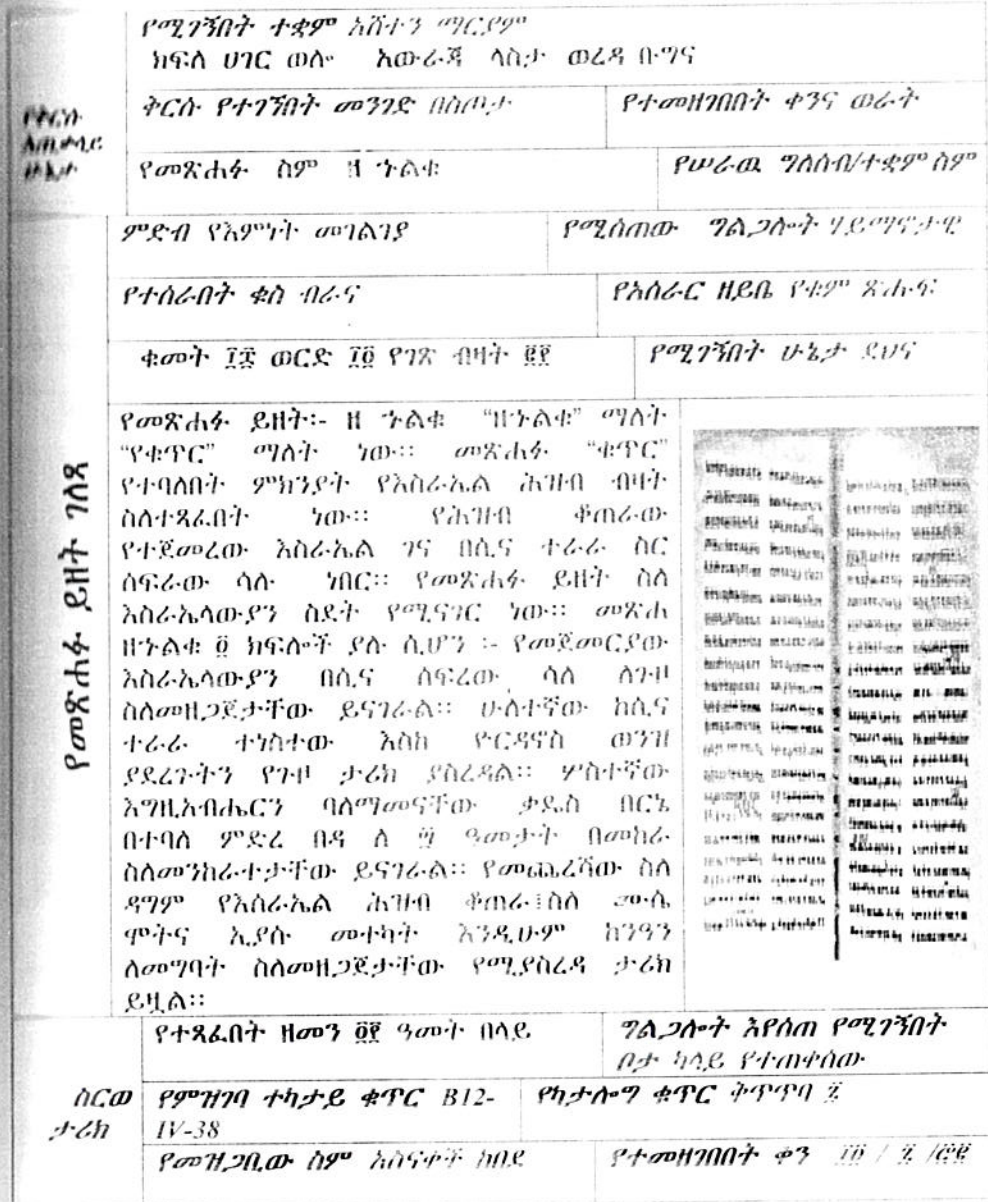 የሚገኝበት ተቋም አሸተን ማርያም
ክፍለ ሀገር ወሎ አውራጃ ላስታ ወረዳ ቡግና
የቅርሱ አጠቃላይ ሁኔታ
ቅርሱ የተገኘበት መንገድ በስጦታ
የተመዘገበበት ቀንና ወራት
የመጽሐፉ ስም ዘ ኁልቁ
የሠራዉ ግለሰብ/ተቋም ስም
የመጽሐፉ ይዘት ገለጻ
ምድብ የእምነት መገልገያ
የሚሰጠው ግልጋሎት ሃይማኖታዊ
የተሰራበት ቁስ ብራና
የአሰራር ዘይቤ የቁም ጽሑፍ
ቁመት ወርድ የገጽ ብዛት
የሚገኝበት ሁኔታ ደህና
የመጽሐፉ ይዘት፡- ዘ ኁልቁ “ዘኁልቁ” ማለት
“የቁጥር” ማለት ነው፡፡ መጽሐፉ “ቁጥር”
የተባለበት ምክንያት የእስራኤል ሕዝብ ብዛት
ስለተጻፈበት ነው፡፡ የሕዝብ ቆጠራው
የተጀመረው እስራኤል ገና በሲና ተራራ ስር
ሰፍራው ሳሉ ነበር፡፡ የመጽሐፉ ይዘት ስለ
እስራኤላውያን ስደት የሚናገር ነው፡፡ መጽሐ
ዘኁልቁ ፬ ክፍሎች ያሉ ሲሆን ፡- የመጀመርያው
እስራኤላውያን በሲና ሰፍረው ሳለ ለጉዞ
ስለመዘጋጀታቸው ይናገራል፡፡ ሁለተኛው ከሲና
ተራራ ተነስተው እስከ ዮርዳኖስ ወንዝ
ያደረጉትን የጉዞ ታሪክ ያስረዳል፡፡ ሦስተኛው
እግዚአብሔርን ባለማመናቸው ቃዴስ በርኔ
በተባለ ምድረ በዳ ለ ፵ ዓመታት በመከራ
ስለመንከራተታቸው ይናገራል፡፡ የመጨረሻው ስለ
ዳግም የእስራኤል ሕዝብ ቆጠራ፤ስለ ሙሴ
ሞትና ኢያሱ መተካት እንዲሁም ከንዓን
ለመግባት ስለመዘጋጀታቸው የሚያስረዳ ታሪክ
ይዟል፡፡
ስርወ ታሪክ
የተጻፈበት ዘመን ዓመት በላይ
ግልጋሎት እየሰጠ የሚገኝበት
ቦታ ካላይ የተጠቀሰው
የምዝገባ ተከታይ ቁጥር B12-
IV-38
የካታሎግ ቁጥር ቅጥጥባ ፯
የመዝጋቢው ስም አስናቀች ከበደ
የተመዘገበበት ቀን